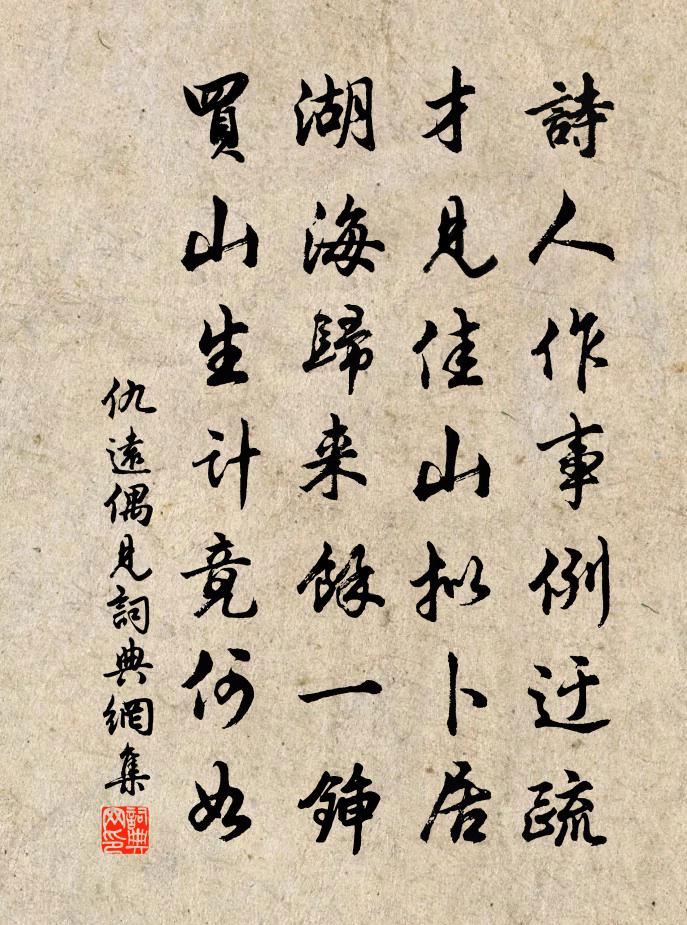 詩人作事例迂疏
才見佳山擬卜居
湖海歸来餘一鍤
買山生計竟何如
仇遠偶見詞典網集
詞典网印